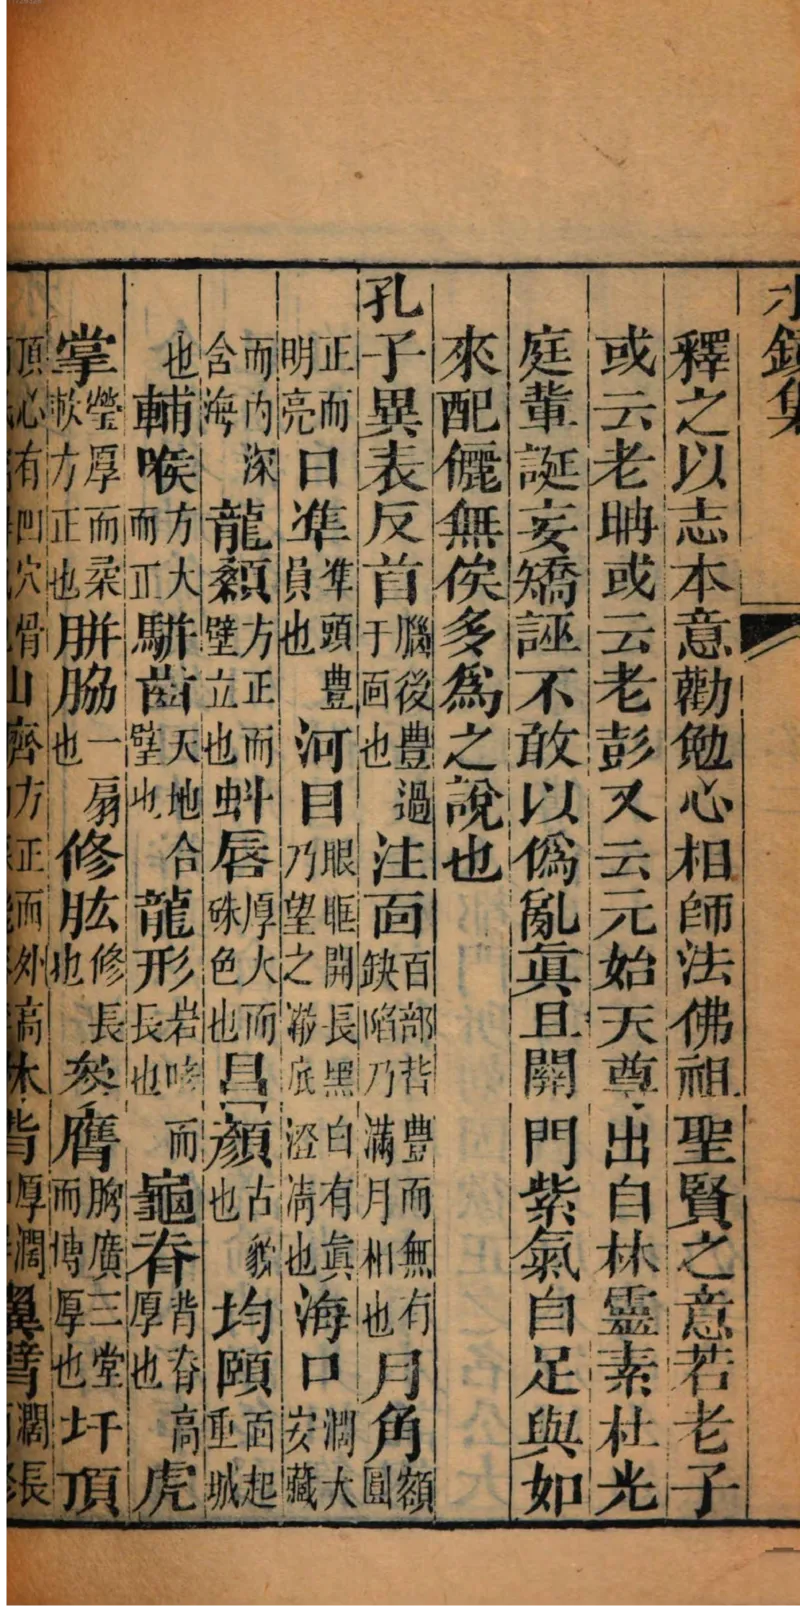 水鏡集
釋之以志本意勸勉心相師法佛祖聖賢之意若老子
或云老聃或云老彭又云元始天尊出自林靈素杜光
庭輩誕妄矯誣不敢以僞亂眞且關門紫氣自足與如
來配儷無俟多爲之說也
孔子異表反首腦後豊過于面也注面百部皆豊而無有缺陷乃滿月相也月角額圓
正而明亮日準準頭豊員也河目眼眶開長黑白有眞乃望之底澄凊也海口濶大安藏
而內深含海龍顙方正而壁立也蚪唇厚大而硃色也昌顏古貌也均頤面起重城
也輔喉方大而正駢齒天地合璧也龍形岩而長也龜脊背脊高厚也虎
掌瑩厚而柔軟方正也胼脇一扇也修肱修長也參膺胸廣三堂而慱厚也圩頂
頂心有凹穴骨山齊方正而外高林背厚濶翼臂濶長